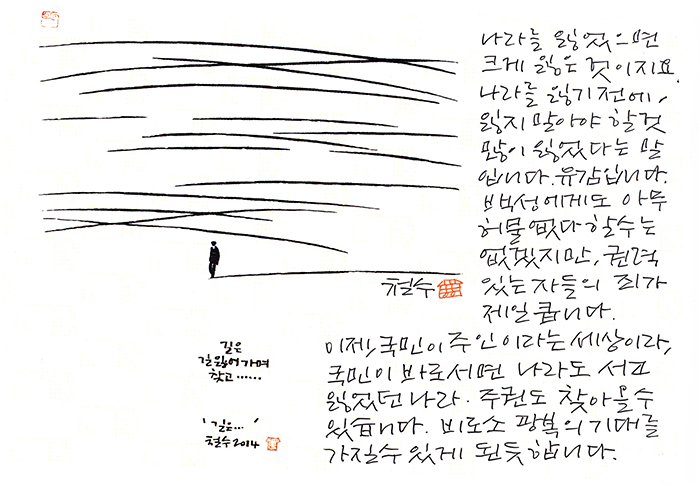 나라를 잃었으면
크게 잃은 것이지요.
나라를 잃기 전에,
잃지 말아야 할 것
많이 잃었다는 말
입니다. 유감입니다.
백성에게도 아무
허물 없다 할수는
없겠지만, 권력
있는 자들의 죄가
제일 큽니다.
철수
이제, 국민이 주인이라는 세상이라,
국민이 바로서면 나라도 서고
잃었던 나라. 주권도 찾아올 수
있습니다. 비로소 광복의 기대를
가질수 있게 된듯합니다.
길은
길 잃어가며
찾고……
'길은…'
철수 2014